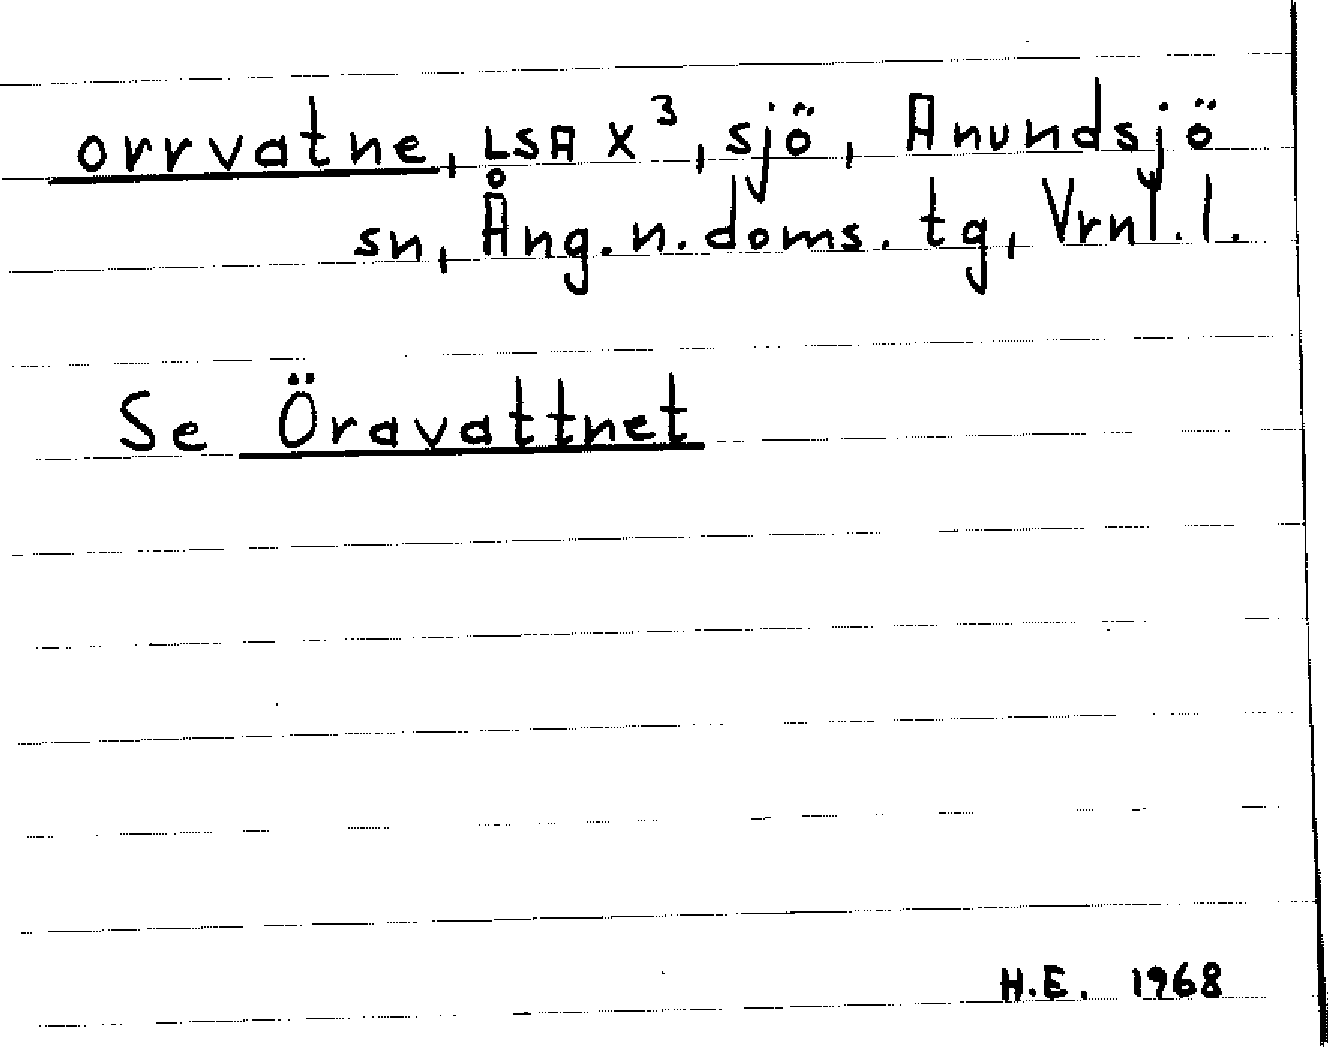 orrvatne, LSA X³, sjö, Anundsjö
sn, Ång.n.doms.tg, Vrnl.l.
Se Öravattnet
H.E. 1968